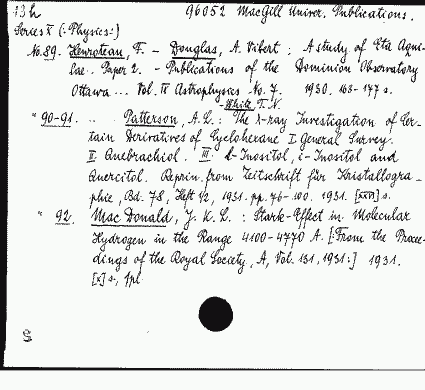 13h 96052 MacGill Univer. Publications.
Series X (:Physics:)
No. 89. Henroteau, F. - Douglas, A. Vibert: A study of Eta Aqui-
lae. Paper 2. - Publications of the Dominion Observatory
Ottawa... Vol. IV Astrophysics. No. 7. 1930. 163-177 s.
White T. N.
" 90-91. .. Patterson, A. L.: The x-ray Investigation of Cer-
tain Derivatives of Cyclohexane I. General Survey.
II. Quebrachiol. III. l-Inositol, i-Inositol and
Quercitol. Reprin. from Zeitschrift für Kristallogra-
phie, Bd. 78, Heft 1/2, 1931. pp. 76-100. 1931. [XXVI] s.
" 92. Mac Donald, J. K. L.: Stark-Effect in Molecular
Hydrogen in the Range 4100-4770 A. [:From the Procee-
dings of the Royal Society, A, Vol. 131, 1931:] 1931.
[X] s., 1pl